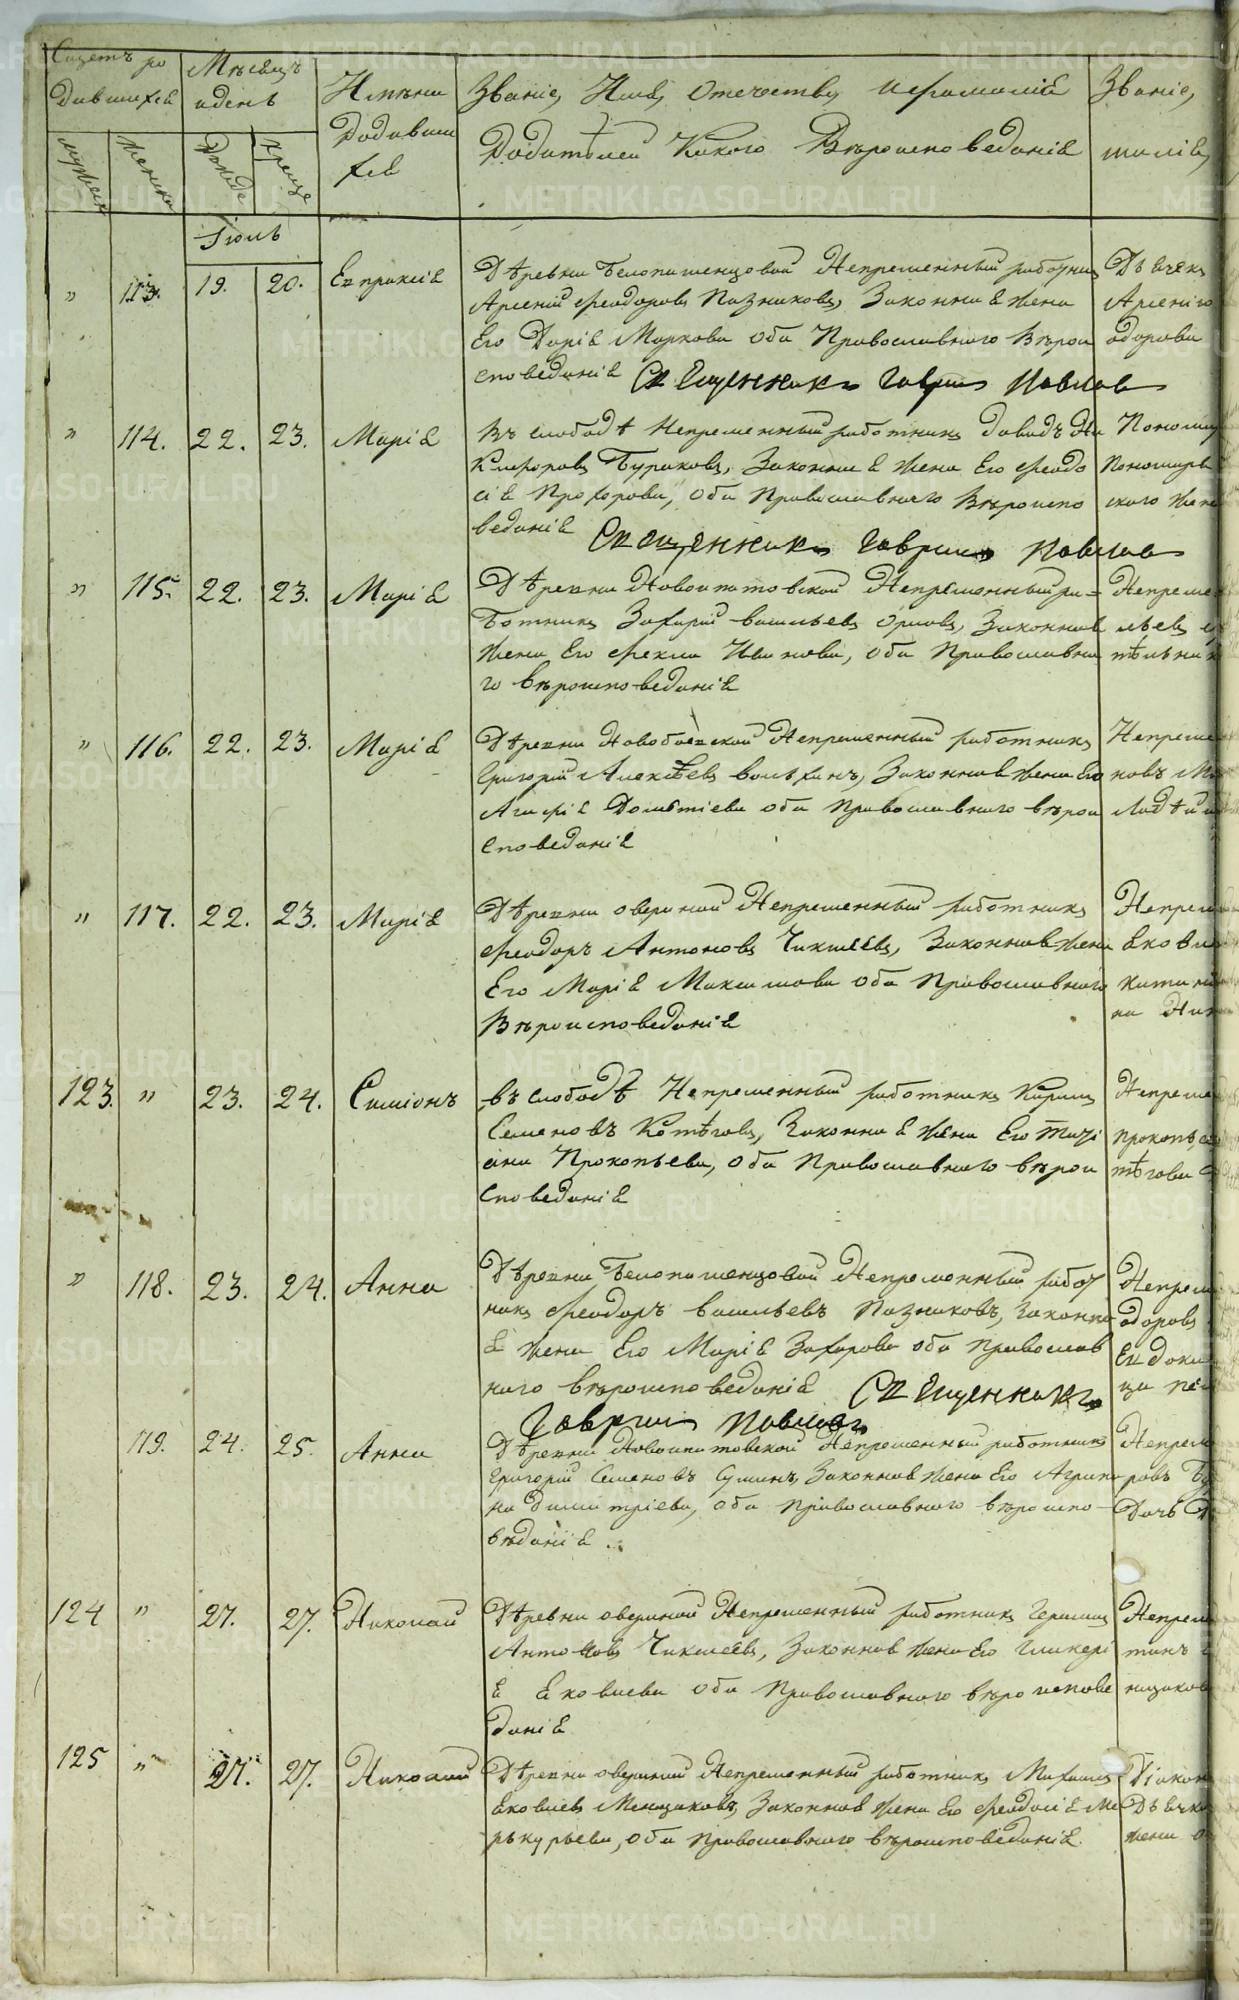 Счетъ ро
дившихся
Мѣсяцъ
и день
Имѣна
родивши
хся
Званіе, Имя, Отечество, и фамилія
родителей Какого Вѣроисповеданія
Званіе,
милія,
мужеск
женска
рожде
креще
Іюль
" 113. 19. 20. Евпраксія
Дѣревни Белопашенцовой Непременный работник
Арсеній Феодоровъ Пазниковъ, Законная жена
Его Дарія Маркова оба Православнаго Вѣрои
споведанія Священникъ Гавриил Павлов
Дьячек
Арсенія
одорова
" 114. 22. 23. Марія
Въ слободѣ Непременный работникъ Давидъ Ни
кифоровъ Бураковъ, Законная жена Его Феодо
сія Прохорова, оба Православнаго Вѣроиспо
веданія Священникъ Гавриилъ Павлов
Пономар
ского жена
" 115. 22. 23. Марія
Дѣревни Новоипатовской Непременный ра=
ботникъ Захарій васильевъ Орловъ, Законная
жена Его Фекла Иванова, оба Православна
го вѣроисповеданія
Непреме
льевъ
" 116. 22. 23. Марія
Дѣревни Новобоевской Непременный работникъ
Григорій Алексѣевъ вольхинъ, Законная жена Его
Агафія Домѣтіева оба Православнаго вѣрои
споведанія
Непреме
новъ
" 117. 22. 23. Марія
Дѣревни овериной Непременный работникъ
Феодоръ Антоновъ Чикилеевъ, Законная жена
Его Марія Максимова оба Православнаго
Вѣроисповеданія
Непрем
123. " 23. 24. Симіонъ
въ слободѣ Непременный работникъ Кирилъ
Семеновъ Котѣговъ, Законная жена Его Тати
ана Прокопьева, оба Православнаго вѣрои
споведанія
Непреме
тѣгова
" 118. 23. 24. Анна
Дѣревни Белопашенцовой Непременный работ
никъ Феодоръ васильевъ Пазниковъ, законна
я жена Его Марія Захарова оба Православ
наго вѣроисповеданія Священникъ
Гавриилъ Павловъ
Непрем
одоровъ
Евдоки
119. 24. 25. Анна
Дѣревни Новоипатовской Непременный работникъ
Григорій Семеновъ Суминъ, Законная жена Его Агрипи
на димитріева, оба Православнаго вѣроиспо-
вѣданія
Непрем
ровъ
Дочь
124 " 27. 27. Николай
Дѣревни овериной Непременный работникъ Герасимъ
Антоновъ Чикилеевъ, Законная жена Его Гликері
я Яковлева оба Православнаго вѣроисповѣ
данія
Непрем
нщикова
125 " 27. 27. Николай
Дѣревни овериной Непременный работникъ Михаилъ
Яковлевъ Менщиковъ, Законная жена Его Феодосія Ме
ркурьева, оба Православнаго вѣроисповеданія.
Діакон
Дьячк
жена
METRIKI.GASO-URAL.RU